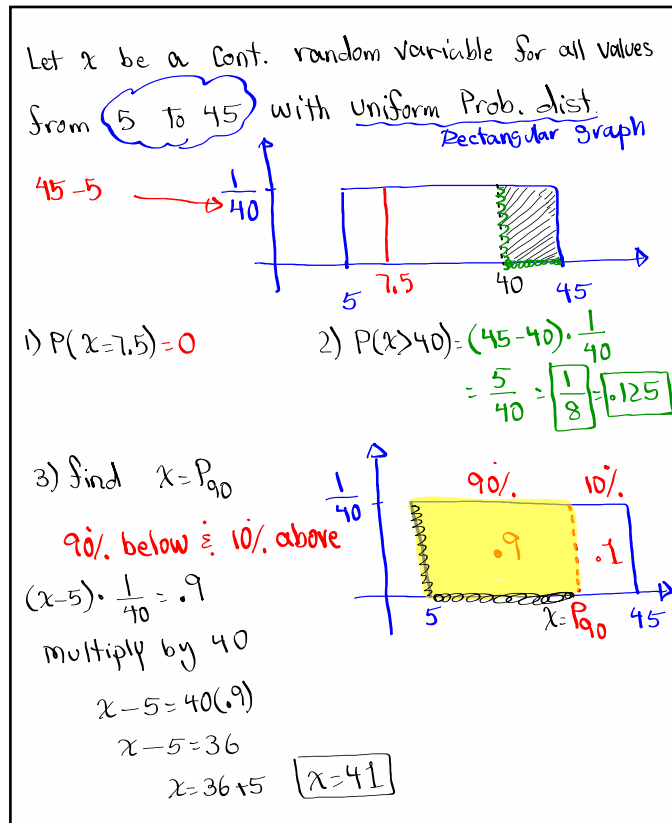 Let x be a Cont. random variable for all values
from 5 To 45 with Uniform Prob. dist.
Rectangular graph
45-5
1/40
5 7.5 40 45
1) P(x=7.5)=0
2) P(x>40)=(45-40)·1/40
= 5/40 = 1/8 = .125
3) find x=P90
90% below & 10% above
1/40
90% 10%
.9 .1
5 x=P90 45
(x-5)·1/40=.9
multiply by 40
x-5=40(.9)
x-5=36
x=36+5 x=41